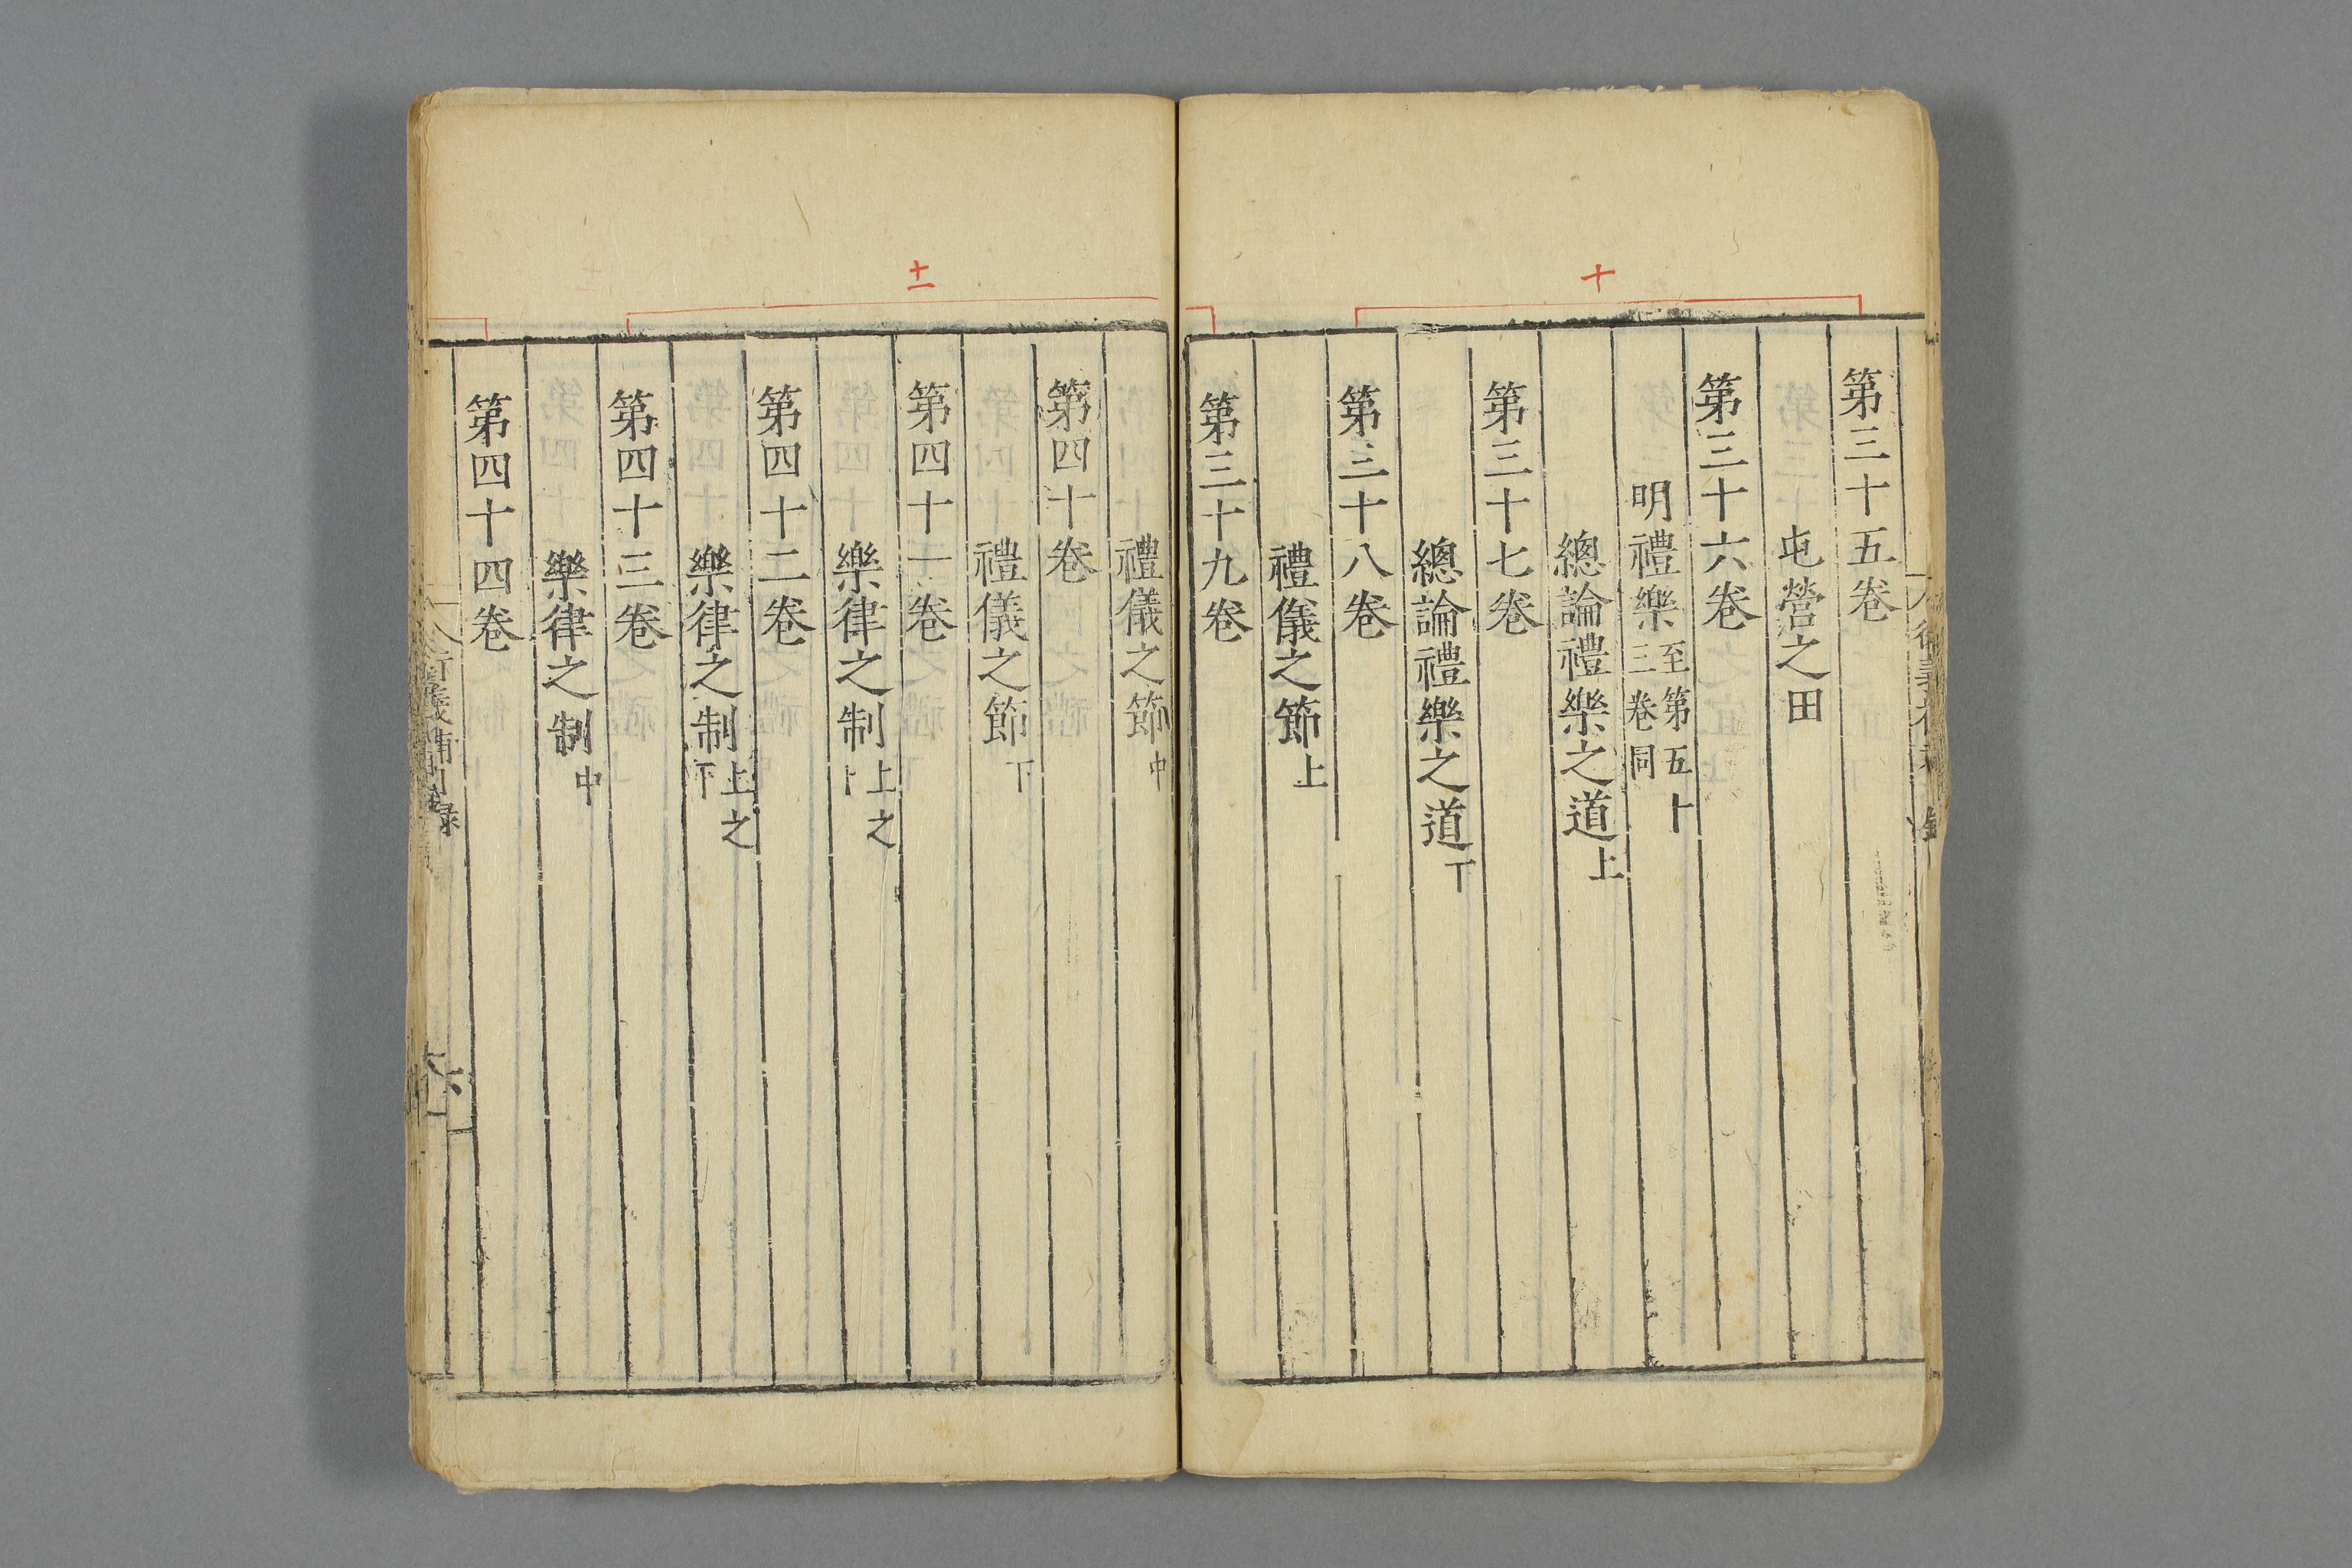 十
第三十五卷
屯營之田
第三十六卷
明禮樂 至第五十三卷同
總論禮樂之道 上
第三十七卷
總論禮樂之道 下
第三十八卷
禮儀之節 上
第三十九卷
十一
禮儀之節 中
第四十卷
禮儀之節 下
第四十一卷
樂律之制 上之上
第四十二卷
樂律之制 上之下
第四十三卷
樂律之制 中
第四十四卷